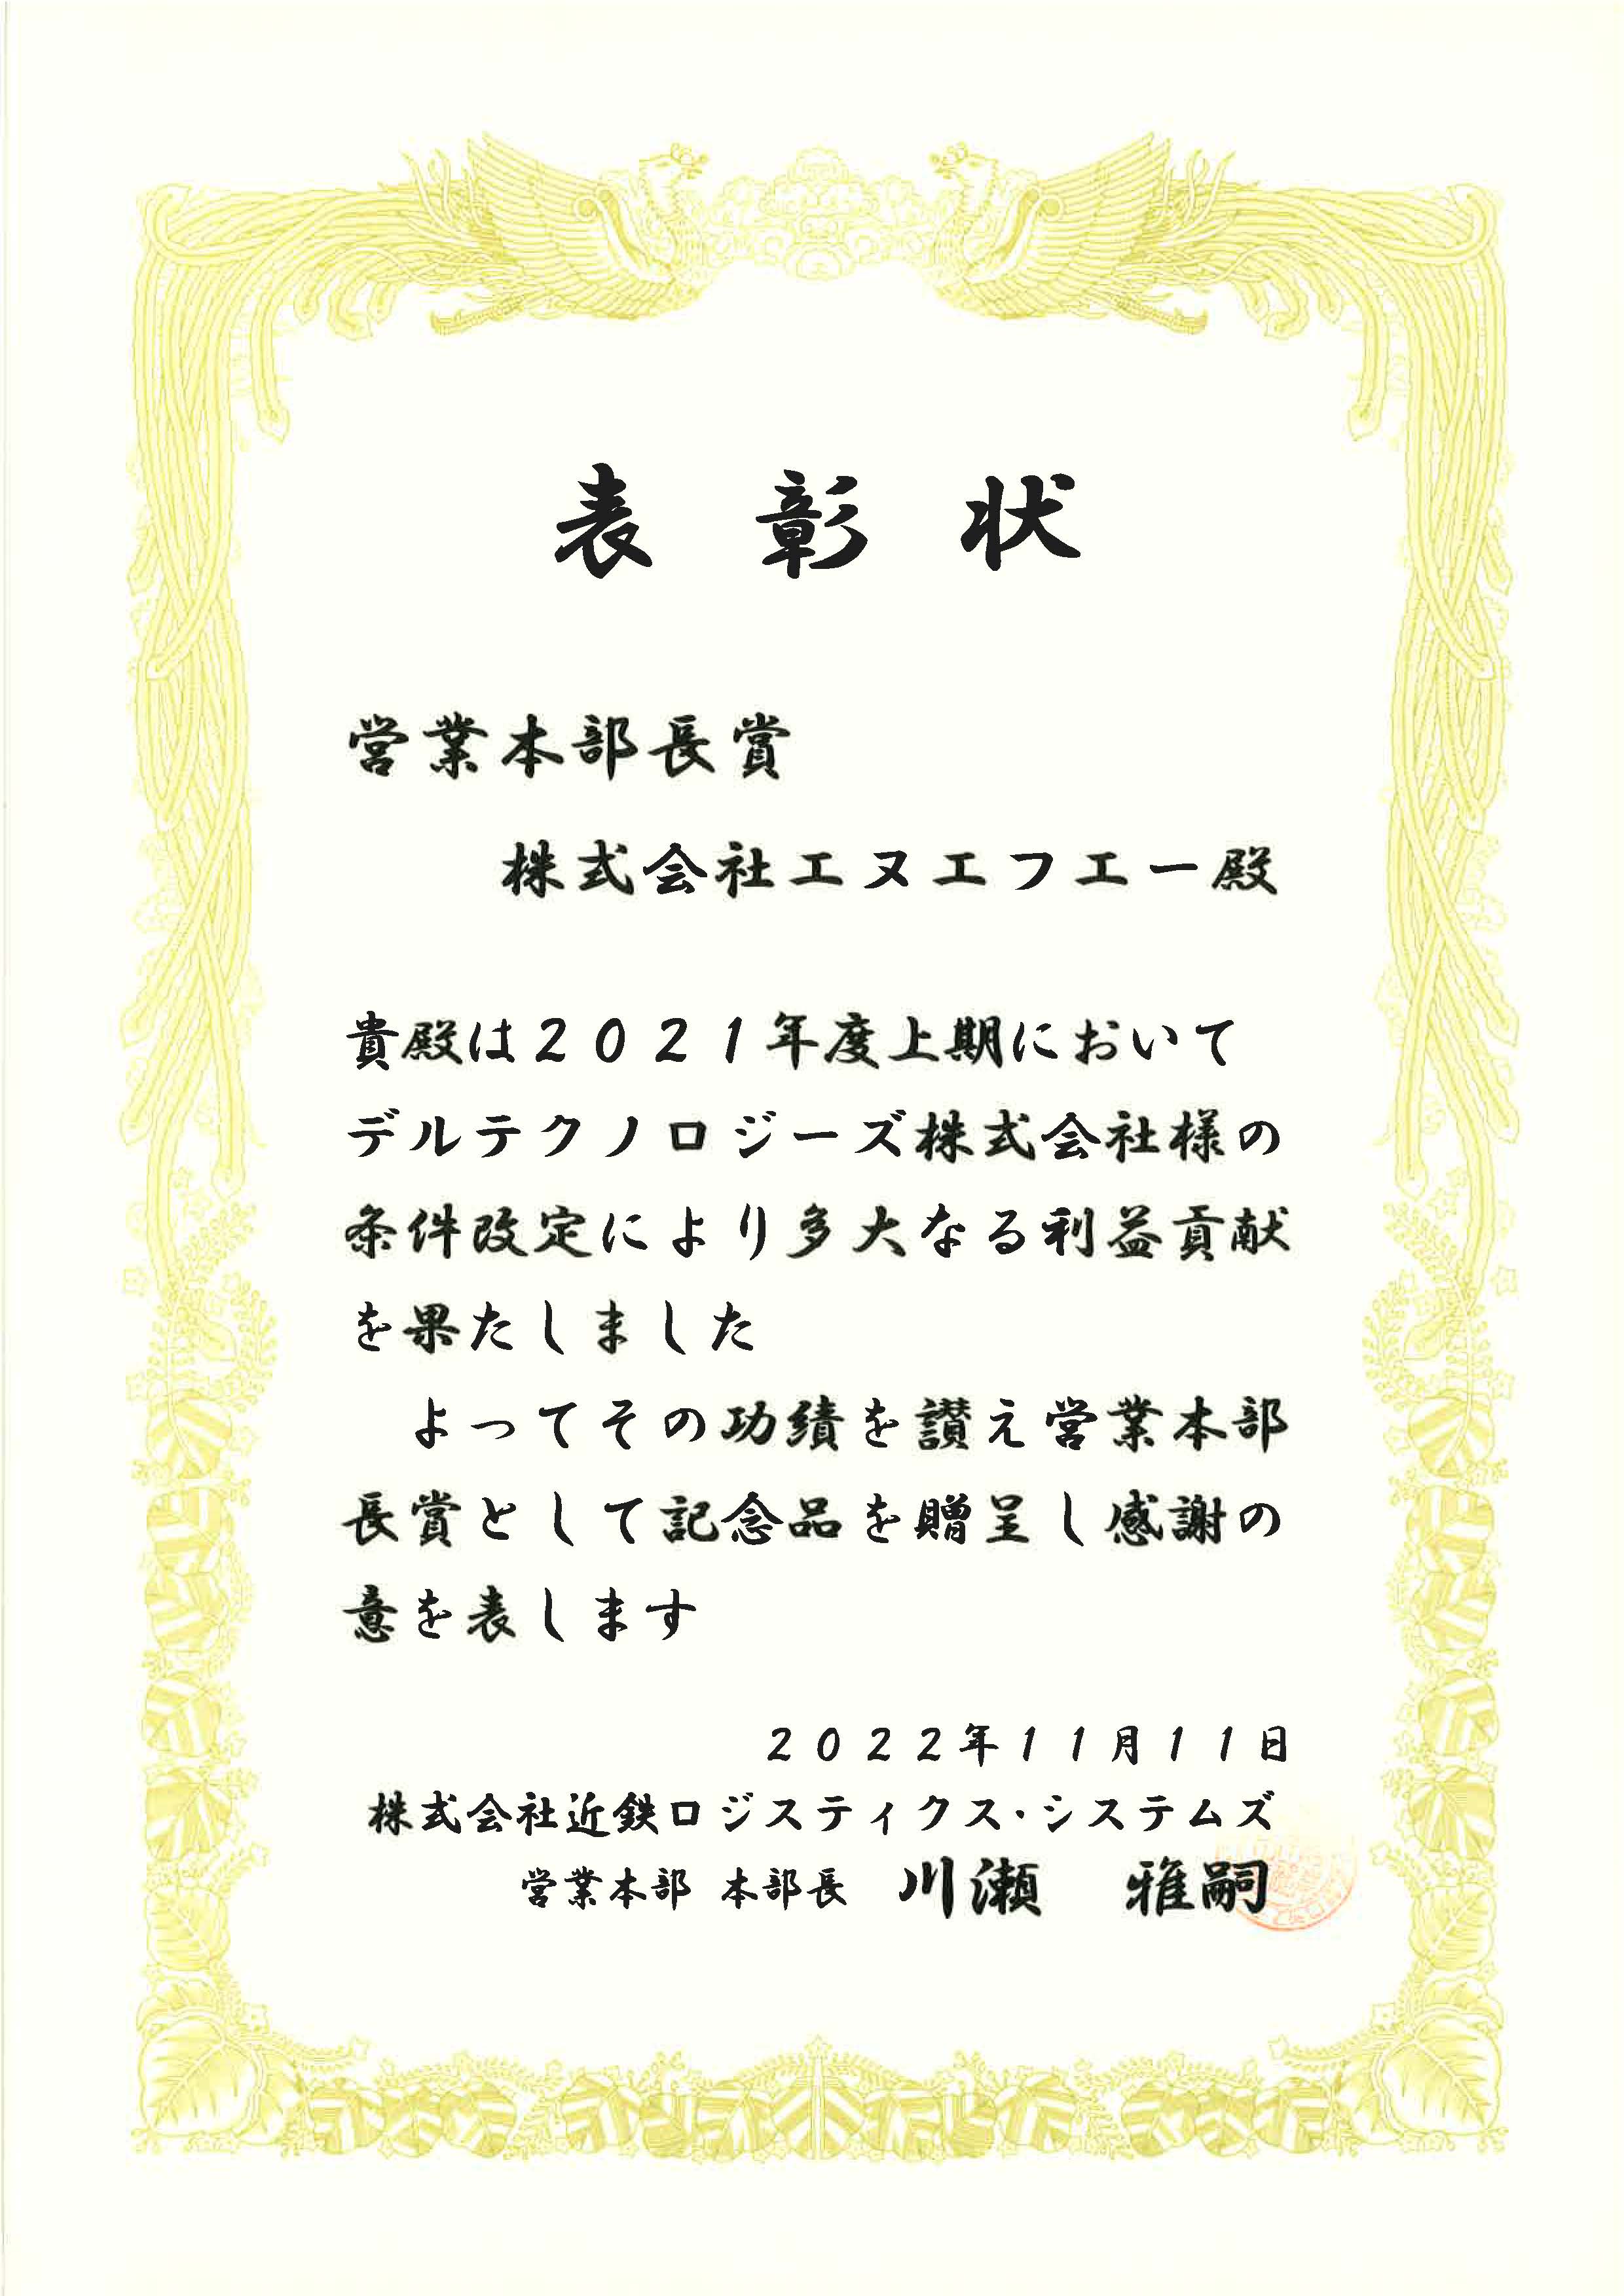 表彰状
営業本部長賞
株式会社エヌエフエー殿
貴殿は２０２１年度上期において
デルテクノロジーズ株式会社様の
条件改定により多大なる利益貢献
を果たしました
よってその功績を讃え営業本部
長賞として記念品を贈呈し感謝の
意を表します
２０２２年１１月１１日
株式会社近鉄ロジスティクス・システムズ
営業本部 本部長 川瀬 雅嗣